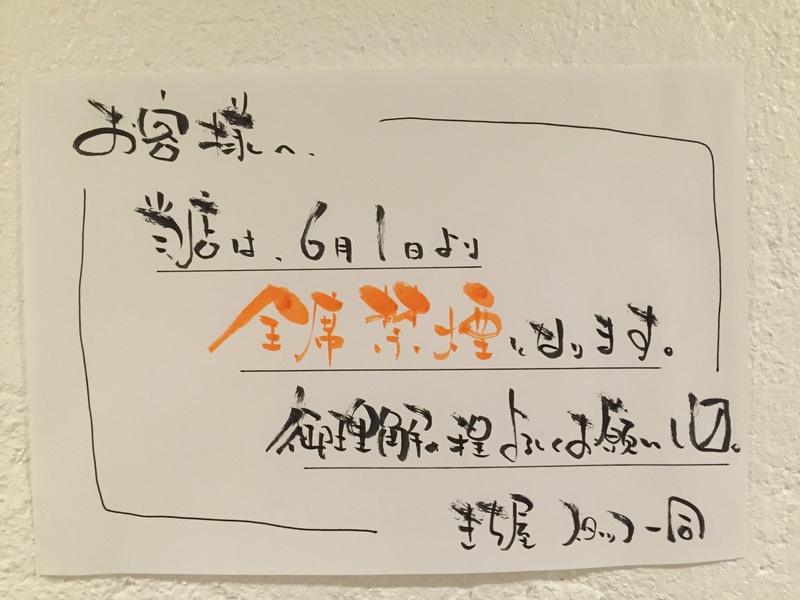 お客様へ.
当店は、6月1日より
全席禁煙になります。
御理解の程よろしくお願いし〼。
きち屋 スタッフ一同